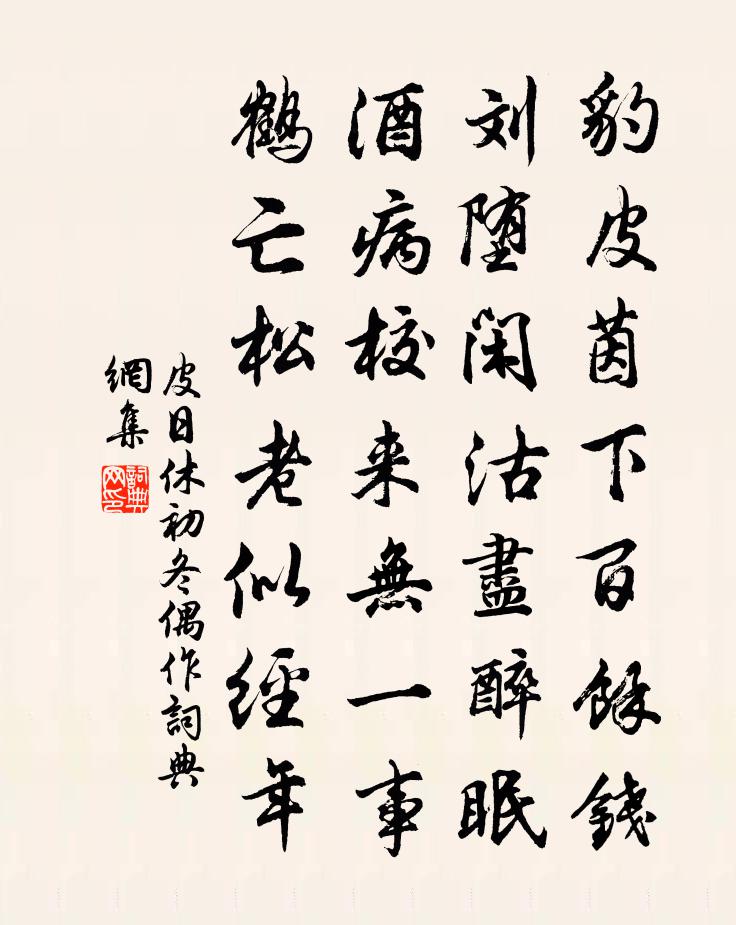 豹皮茵下百餘錢
刘堕閑沽盡醉眠
酒病校来無一事
鶴亡松老似經年
皮日休初冬偶作詞典
網集
詞典網印